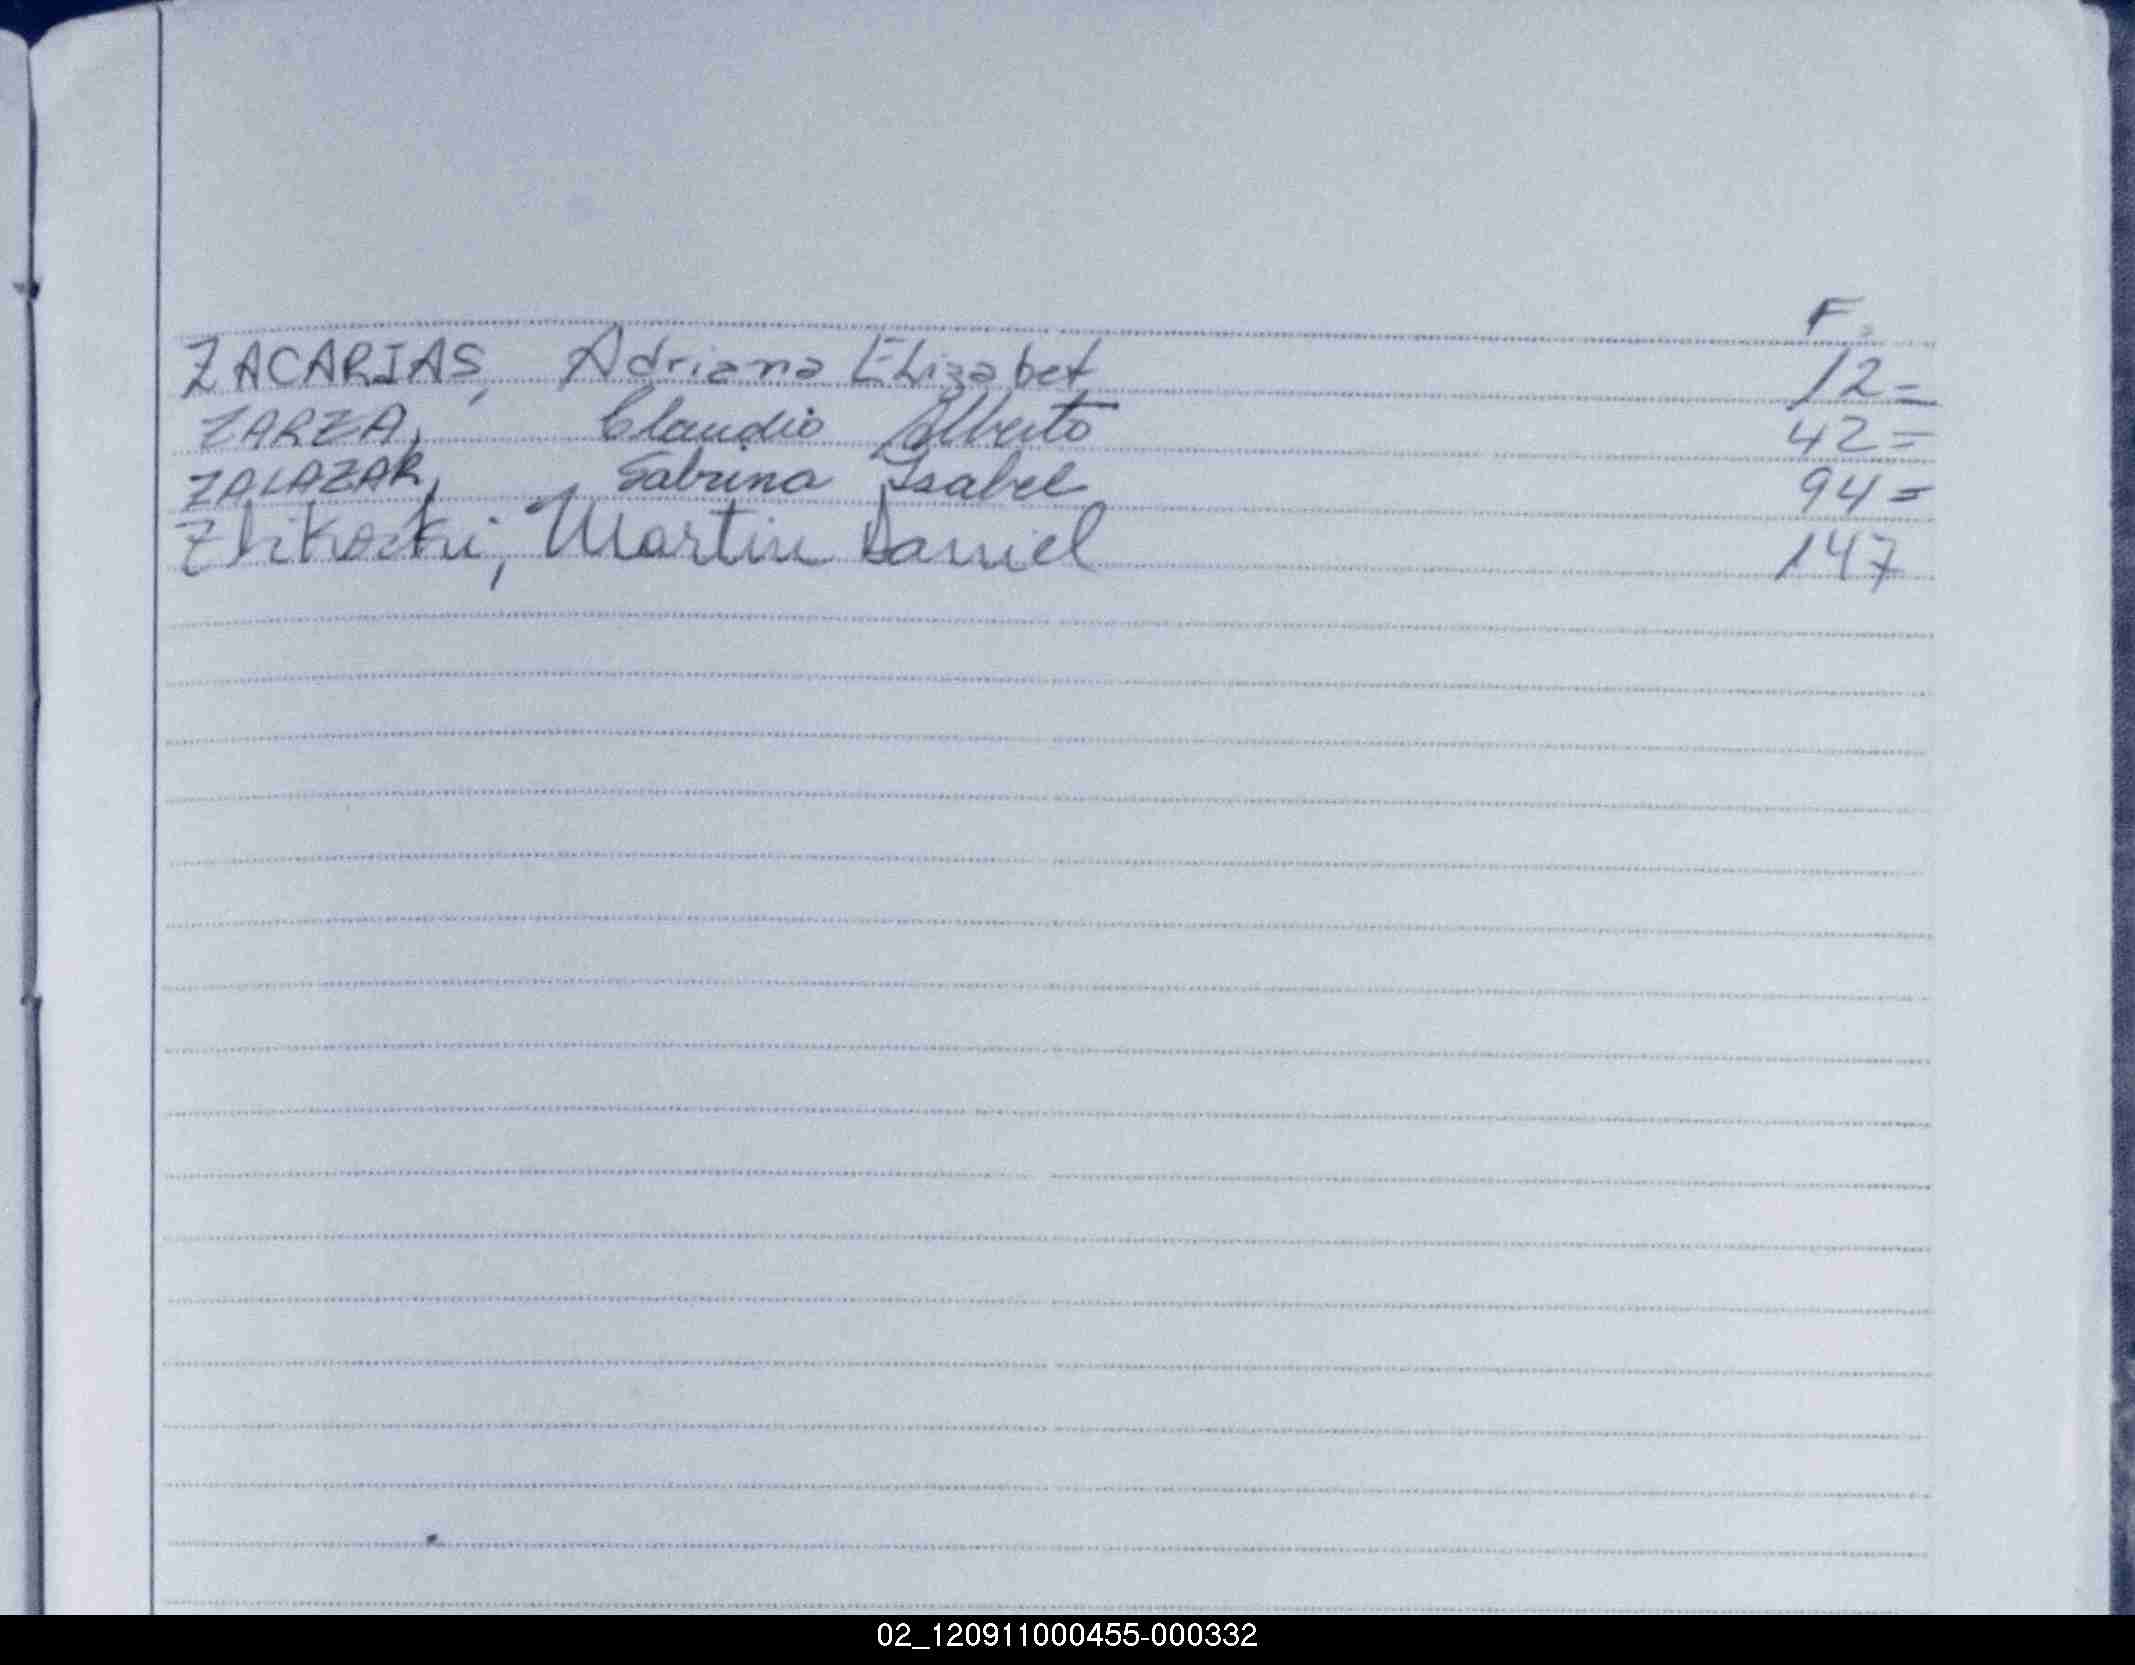 F.
ZACARIAS, Adriana Elizabet 12=
ZARZA, Claudio Alberto 42=
ZALAZAR, Sabrina Isabel 94=
Martin Daniel 147
02_120911000455-000332